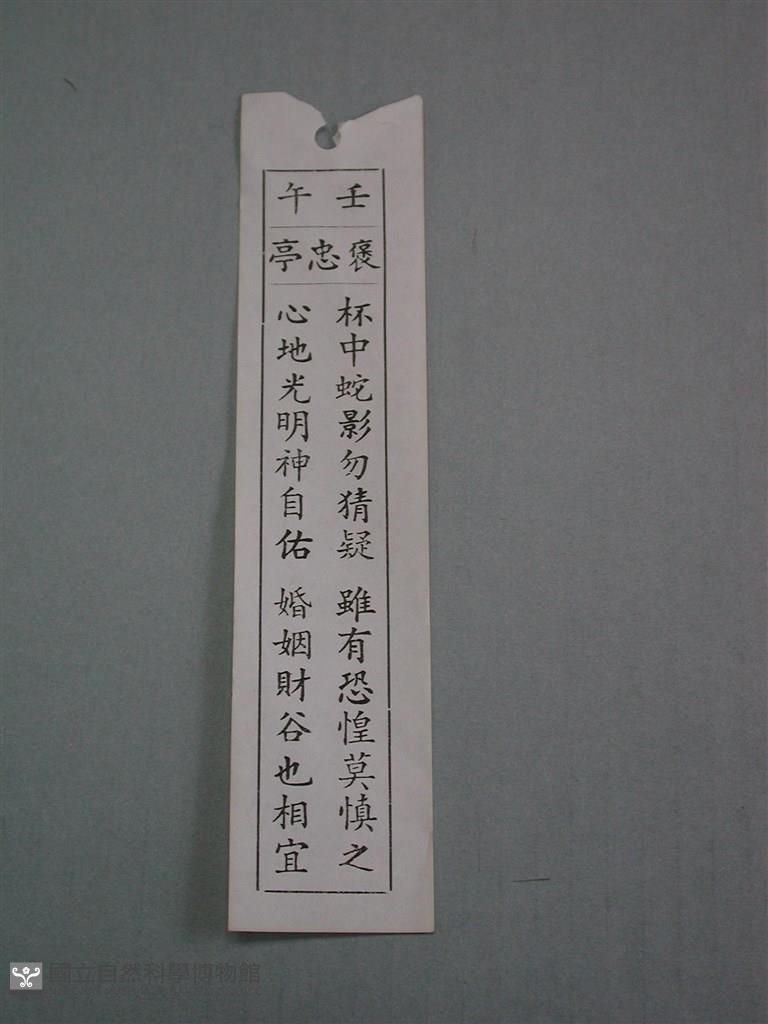 壬午
褒忠亭
杯中蛇影勿猜疑 雖有恐惶莫慎之
心地光明神自佑 婚姻財谷也相宜
國立自然科學博物館